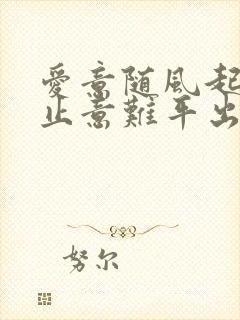 愛意随風起
止意難平出
努尔